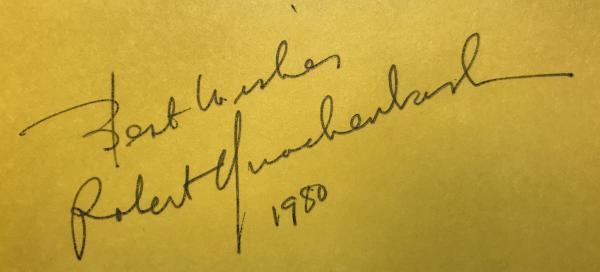 Best Wishes
Robert Quackenbush
1980